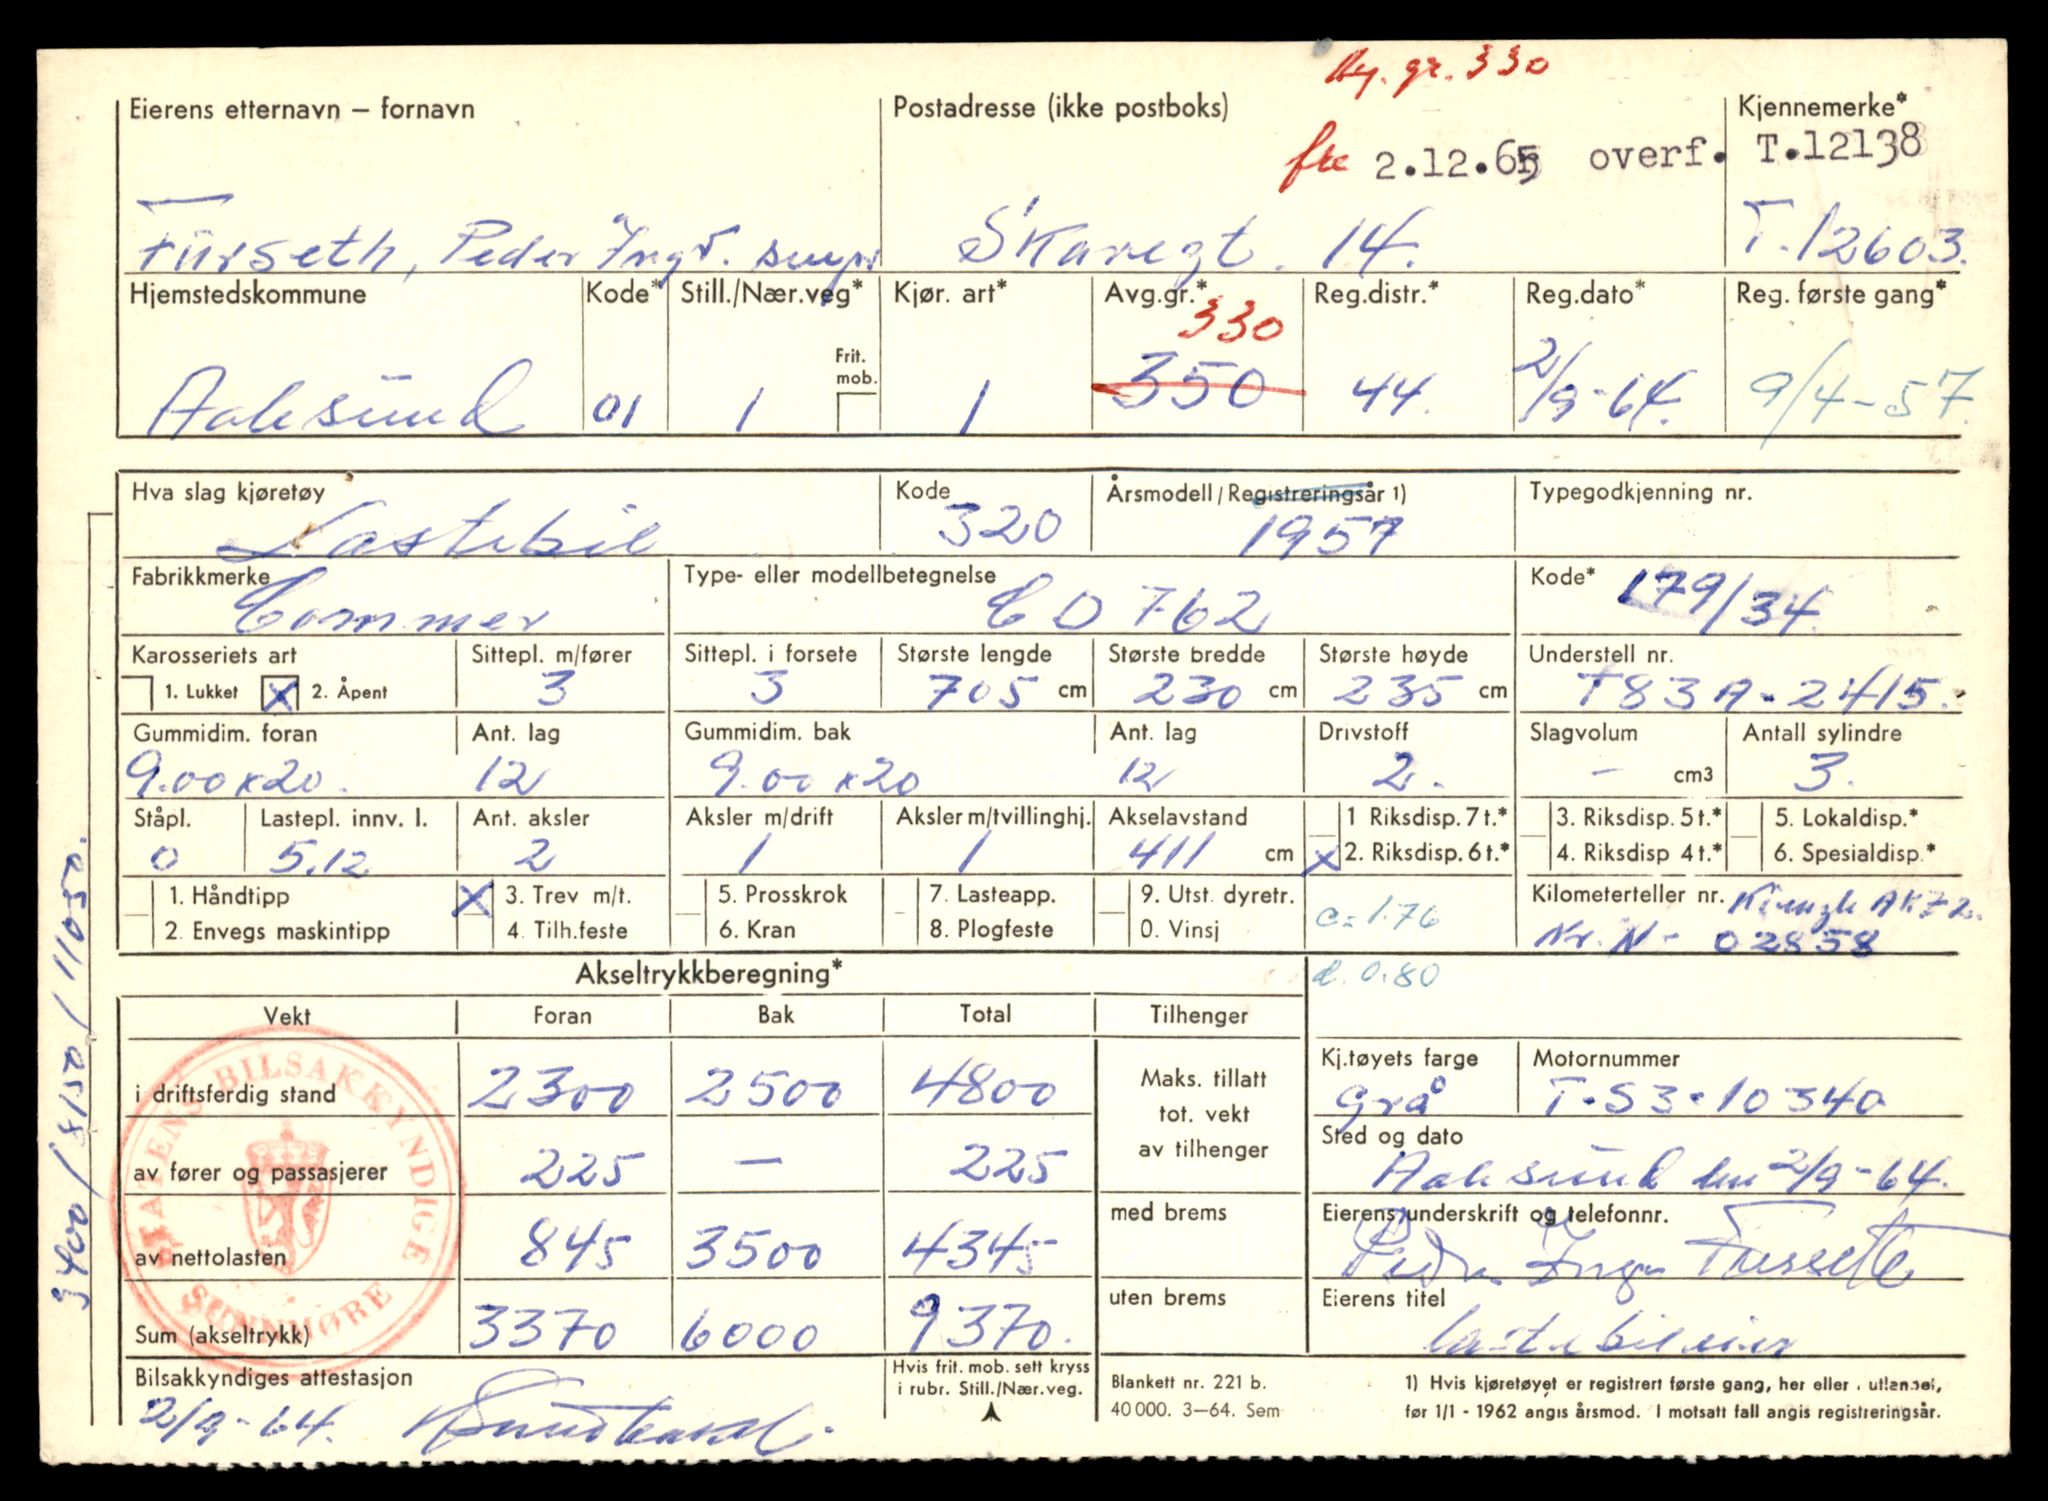 Ny. gr. 330
Eierens etternavn – fornavn Postadresse (ikke postboks) Kjennemerke*
fra 2.12.65 overf. T.12138
Furseth, Peder Skaregt. 14. T.12603.
Hjemstedskommune Kode* Still./Nær.veg* Kjør. art* Avg.gr.* Reg.distr.* Reg.dato* Reg. første gang*
330
Frit. mob.
Aalesund 01 1 1 350 44. 2/9-64. 9/4-57.
Hva slag kjøretøy Kode Årsmodell/Registreringsår 1) Typegodkjenning nr.
Lastebil 320 1957
Fabrikkmerke Type- eller modellbetegnelse Kode*
Commer C D 762 179/34.
Karosseriets art Sittepl. m/fører Sittepl. i forsete Største lengde Største bredde Største høyde Understell nr.
1. Lukket X 2. Åpent 3 3 705 cm 230 cm 235 cm T83A-2415.
Gummidim. foran Ant. lag Gummidim. bak Ant. lag Drivstoff Slagvolum Antall sylindre
9.00x20. 12 9.00x20 12 2. - cm3 3.
Ståpl. Lastepl. innv. l. Ant. aksler Aksler m/drift Aksler m/tvillinghj. Akselavstand 1 Riksdisp. 7 t.* 3. Riksdisp. 5 t.* 5. Lokaldisp.*
0 5.12 2 1 1 411 cm X 2. Riksdisp. 6 t.* 4. Riksdisp 4 t.* 6. Spesialdisp.*
1. Håndtipp X 3. Trev m/t. 5. Prosskrok 7. Lasteapp. 9. Utst. dyretr. Kilometerteller nr. Kienzle
2. Envegs maskintipp 4. Tilh.feste 6. Kran 8. Plogfeste 0. Vinsj c=1.76 Nr. N- 02858
Akseltrykkberegning* d. 0.80
Vekt Foran Bak Total Tilhenger
i driftsferdig stand 2300 2500 4800 Maks. tillatt tot. vekt av tilhenger
Kj.tøyets farge Motornummer
grå T.S3.10340
av fører og passasjerer 225 — 225
Sted og dato
Aalesund den 2/9-64.
av nettolasten 845 3500 4345 med brems
Eierens underskrift og telefonnr.
Peder Ingv. Furseth
Sum (akseltrykk) 3370 6000 9370. uten brems
Eierens titel
lastebileier
Bilsakkyndiges attestasjon
2/9-64.
Hvis frit. mob. sett kryss
i rubr. Still./Nær.veg.
Blankett nr. 221 b.
40 000. 3–64. Sem
1) Hvis kjøretøyet er registrert første gang, her eller i utlandet,
før 1/1 - 1962 angis årsmod. I motsatt fall angis registreringsår.
STATENS BILSAKKYNDIGE
SUNNMØRE
3400/8150/11050.